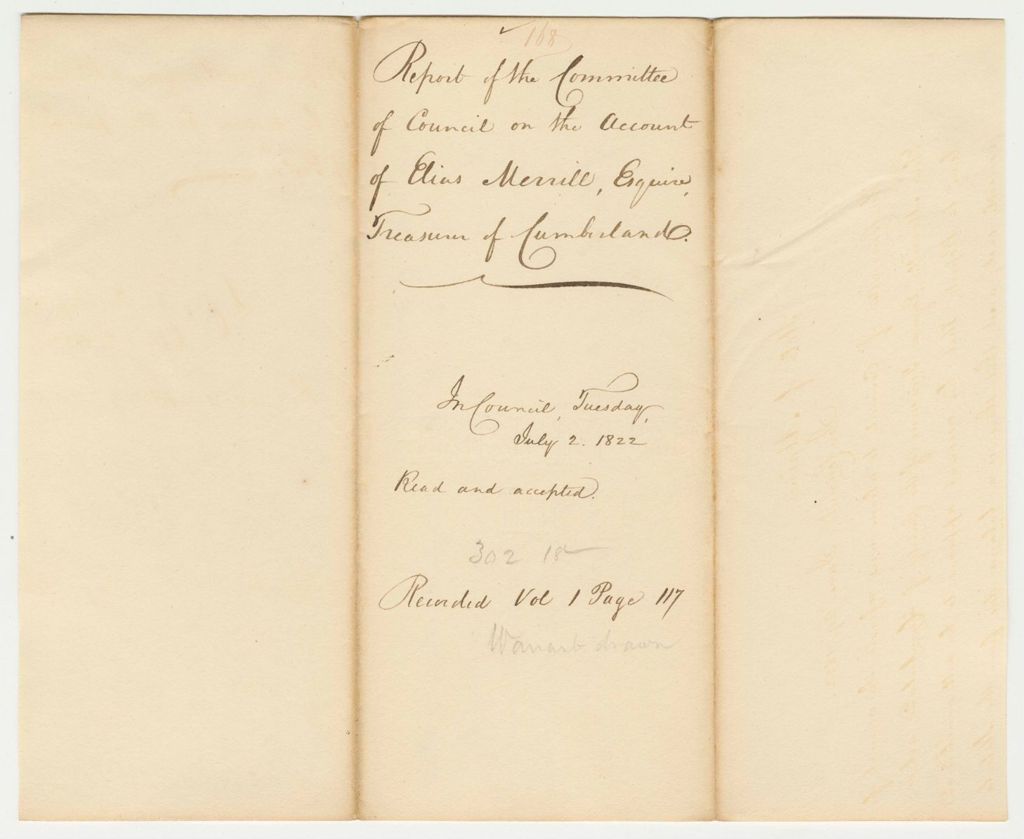 168
Report of the Committee
of Council on the Account
of Elias Merrill, Esquire,
Treasurer of Cumberland.
In Council, Tuesday,
July 2. 1822
Read and accepted.
302 18
Recorded Vol 1 Page 117
Warrant drawn